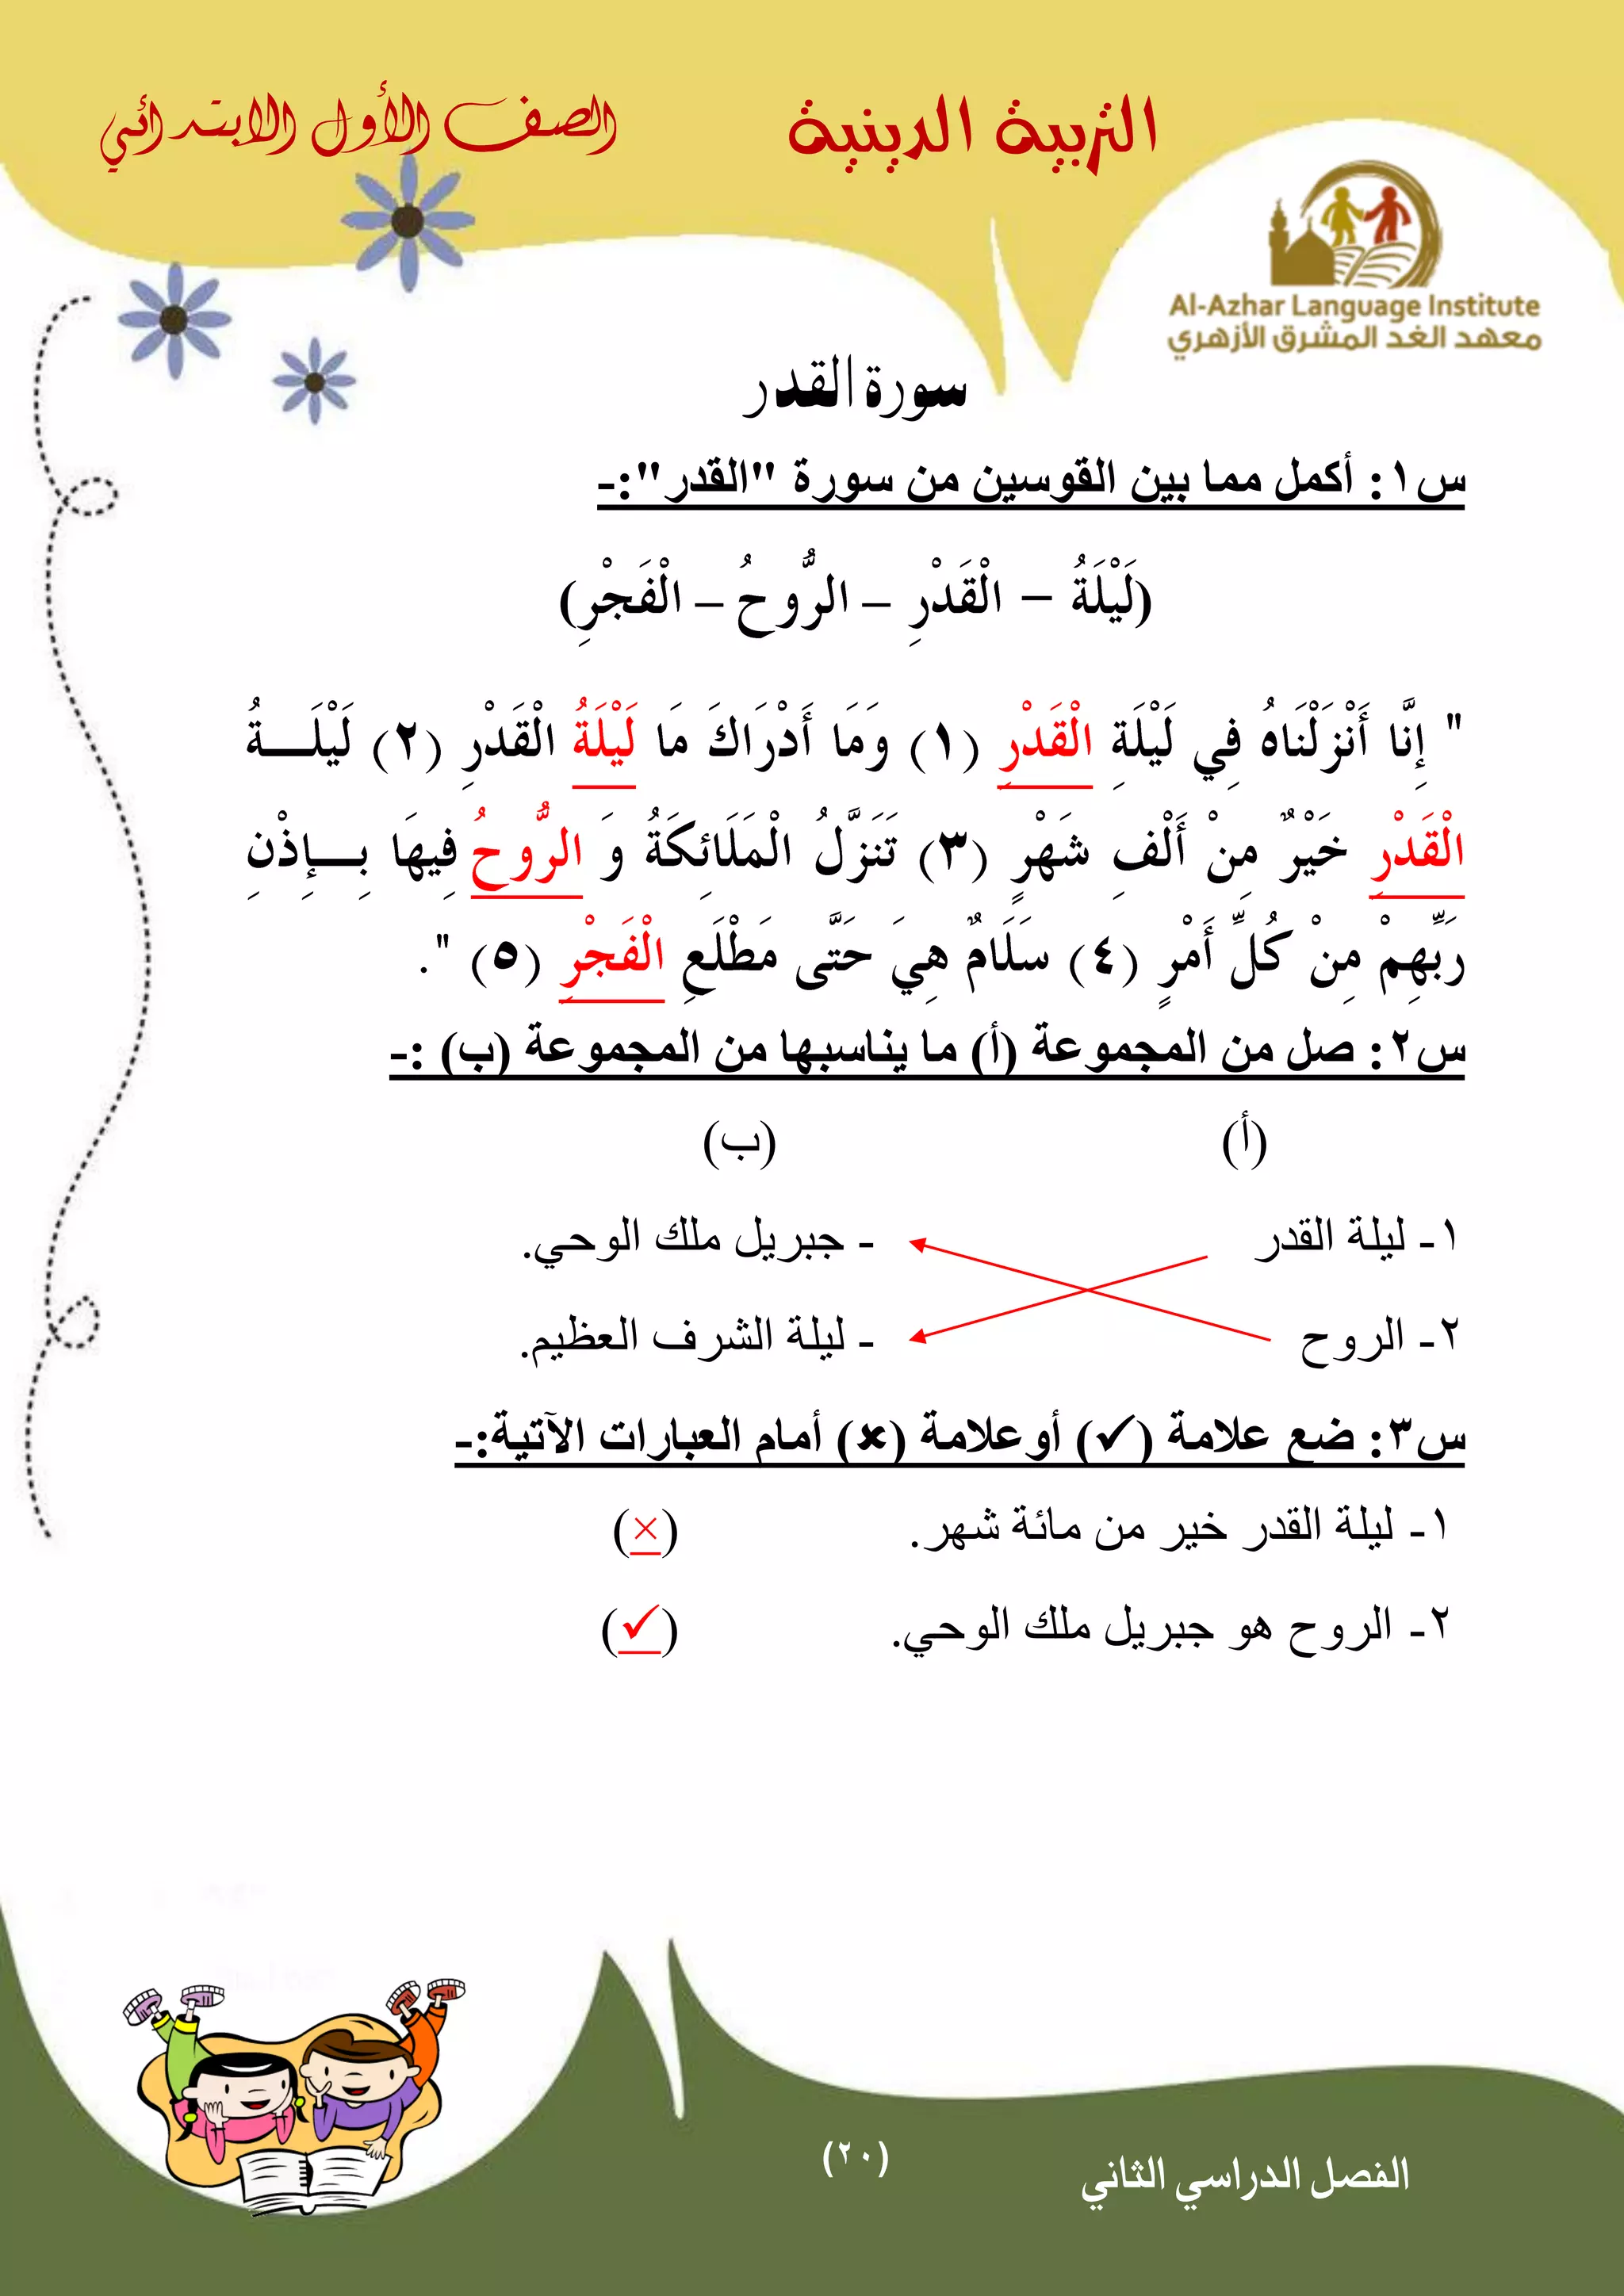 التربية الدينية الصف الأول الابتدائي
Al-Azhar Language Institute
معهد الغد المشرق الأزهري
سورة القدر
س١: أكمل مما بين القوسين من سورة "القدر":-
(لَيْلَةُ – الْقَدْرِ – الرُّوحُ – الْفَجْرِ)
" إِنَّا أَنْزَلْنَاهُ فِي لَيْلَةِ الْقَدْرِ (١) وَمَا أَدْرَاكَ مَا لَيْلَةُ الْقَدْرِ (٢) لَيْلَـــةُ
الْقَدْرِ خَيْرٌ مِنْ أَلْفِ شَهْرٍ (٣) تَنَزَّلُ الْمَلَائِكَةُ وَ الرُّوحُ فِيهَا بِـــإِذْنِ
رَبِّهِمْ مِنْ كُلِّ أَمْرٍ (٤) سَلَامٌ هِيَ حَتَّى مَطْلَعِ الْفَجْرِ (٥) ".
س٢: صل من المجموعة (أ) ما يناسبها من المجموعة (ب) :-
(أ) (ب)
١- ليلة القدر - جبريل ملك الوحي.
٢- الروح - ليلة الشرف العظيم.
س٣: ضع علامة (✓) أوعلامة (×) أمام العبارات الآتية:-
١- ليلة القدر خير من مائة شهر. (×)
٢- الروح هو جبريل ملك الوحي. (✓)
(٢٠)
الفصل الدراسي الثاني